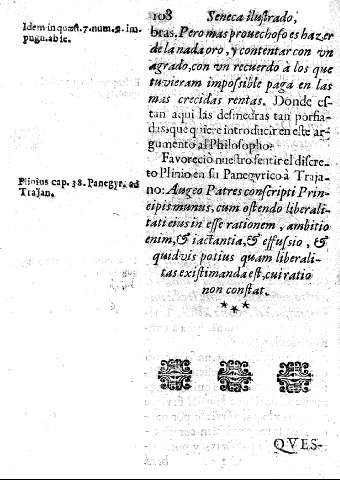 108 Seneca ilustrado,
Idem in quæst. 7. num. 9. im-
pugnabic.
bras. Pero mas prouechoso es hazer
de la nada oro, y contentar con vn
agrado, con vn recuerdo à los que
tuvieram impossible paga en las
mas crecidas rentas. Donde es-
tan aqui las desmedras tan porfia-
das, que quiere introducir en este ar-
gumento al Philosopho?
Favoreciò nuestro sentir el discre-
to Plinio en su Panegyrico à Traja-
Plinius cap. 38. Panegyr. ad
Trajan.
no: Augeo Patres conscripti Prin-
cipis munus, cum ostendo liberali-
tati eius in esse rationem, ambitio
enim, & iactantia, & effusio, &
quidvis potius quam liberali-
tas existimanda est, cui ratio
non constat.
QVES-